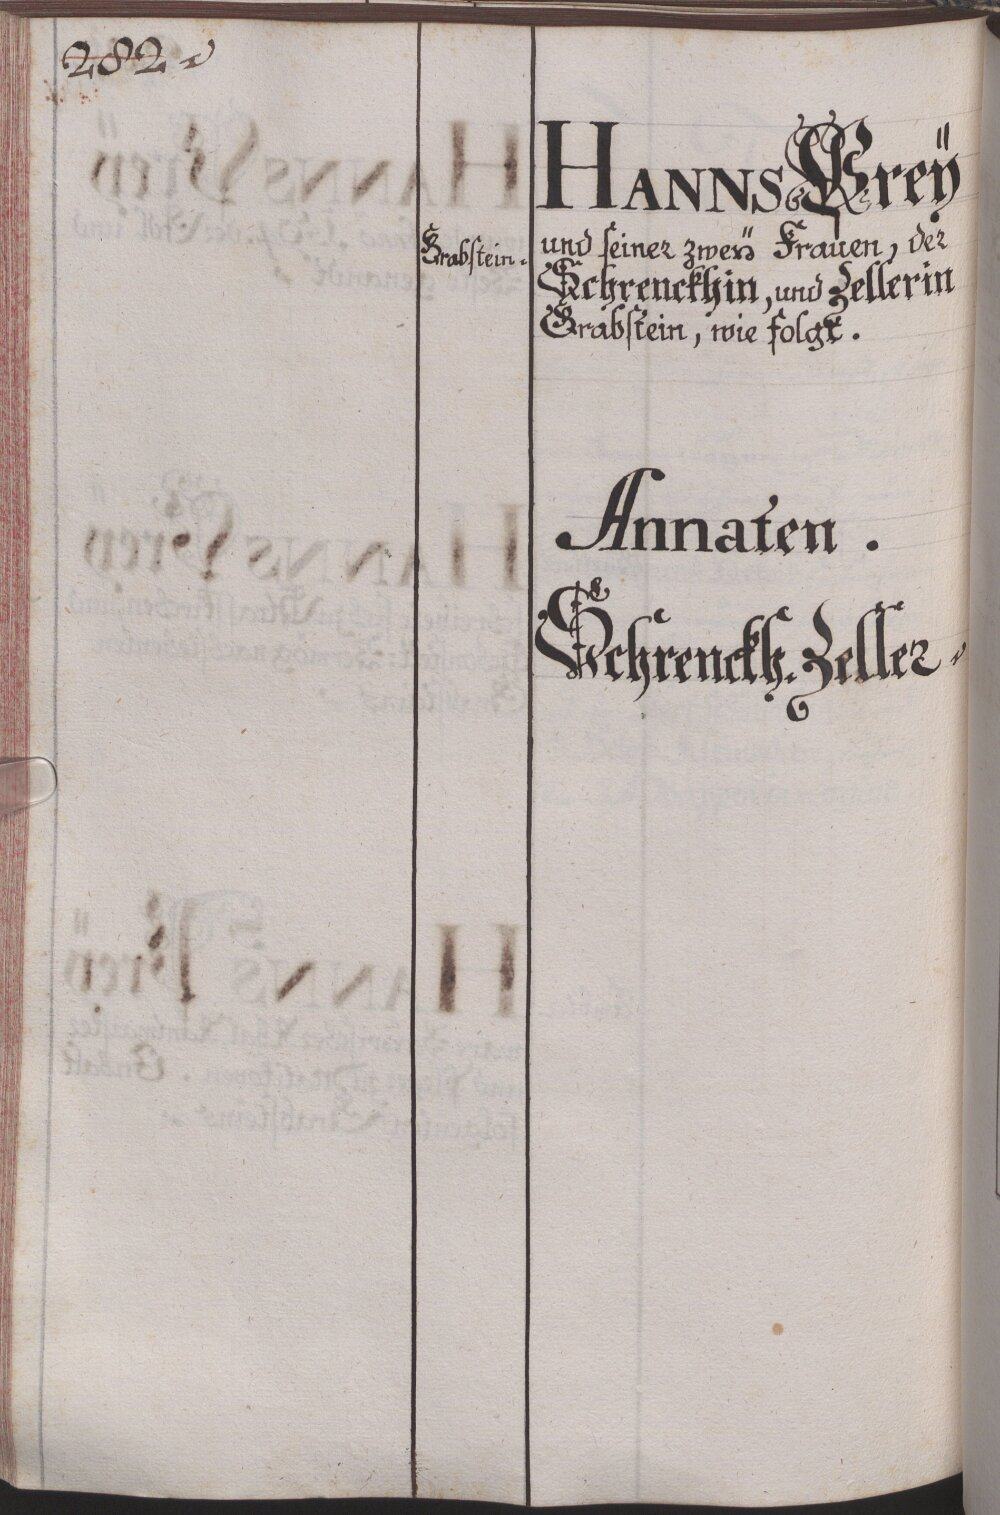 282
HANNS Preÿ
Grabstein.
und seiner zweÿ Frauen, der
Schrenckhin, und Zellerin
Grabstein, wie folgt.
Annaten.
Schrenckh. Zeller